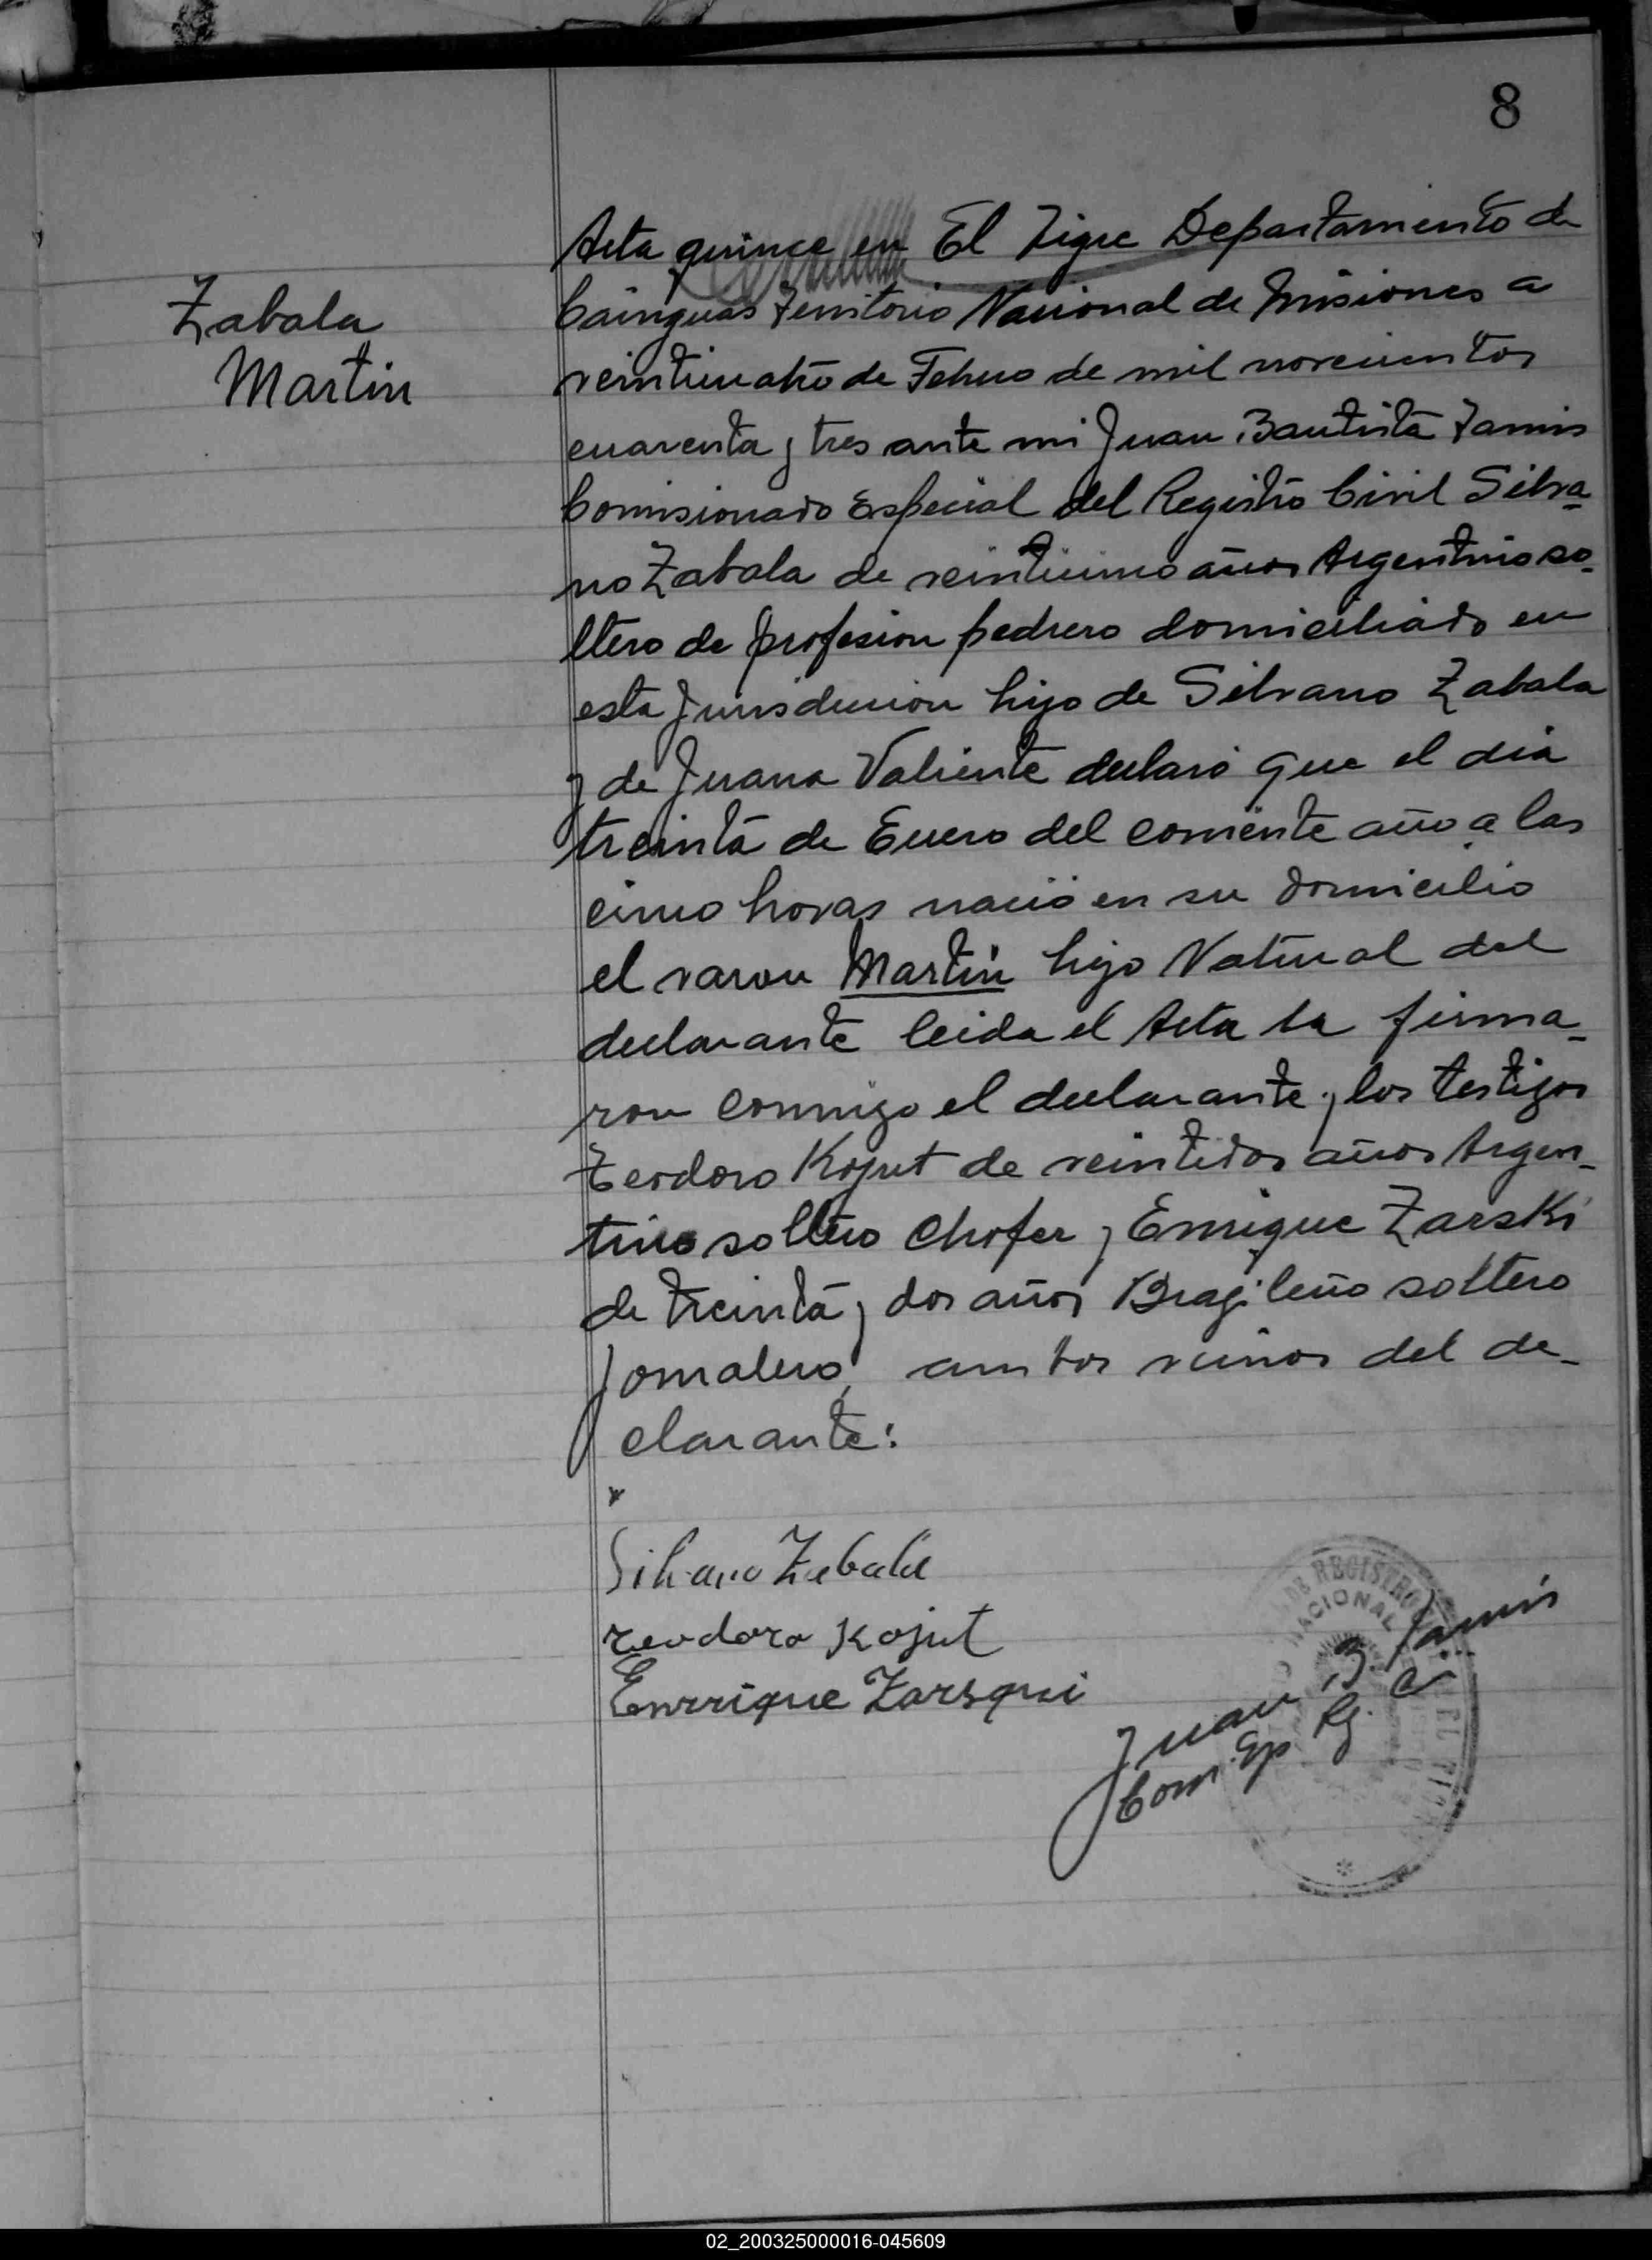 8
Zabala
Martin
Acta quince en El Tigre Departamento de
Cainguas Territorio Nacional de Misiones a
veinticuatro de Febrero de mil novecientos
cuarenta y tres ante mi Juan Bautista Tamis
Comisionado Especial del Registro Civil Silva-
no Zabala de veinticinco años Argentino so-
ltero de profesion pedrero domiciliado en
esta Jurisdiccion hijo de Silvano Zabala
y de Juana Valiente declaró que el dia
treinta de Enero del corriente año a las
cinco horas nació en su domicilio
el varon Martin hijo Natural del
declarante leida el Acta la firma-
ron conmigo el declarante y los testigos
Teodoro Kojut de veintidos años Argen-
tino soltero Chofer y Enrique Zarski
de treinta y dos años Brasileño soltero
Jornalero, ambos vecinos del de-
clarante:
Silvano Zabala
Teodoro Kojut
Enrrique Zarsqui
DE REGISTRO
NACIONAL
Juan B. Tamis
Com. Esp. Rg. C.
02_200325000016-045609